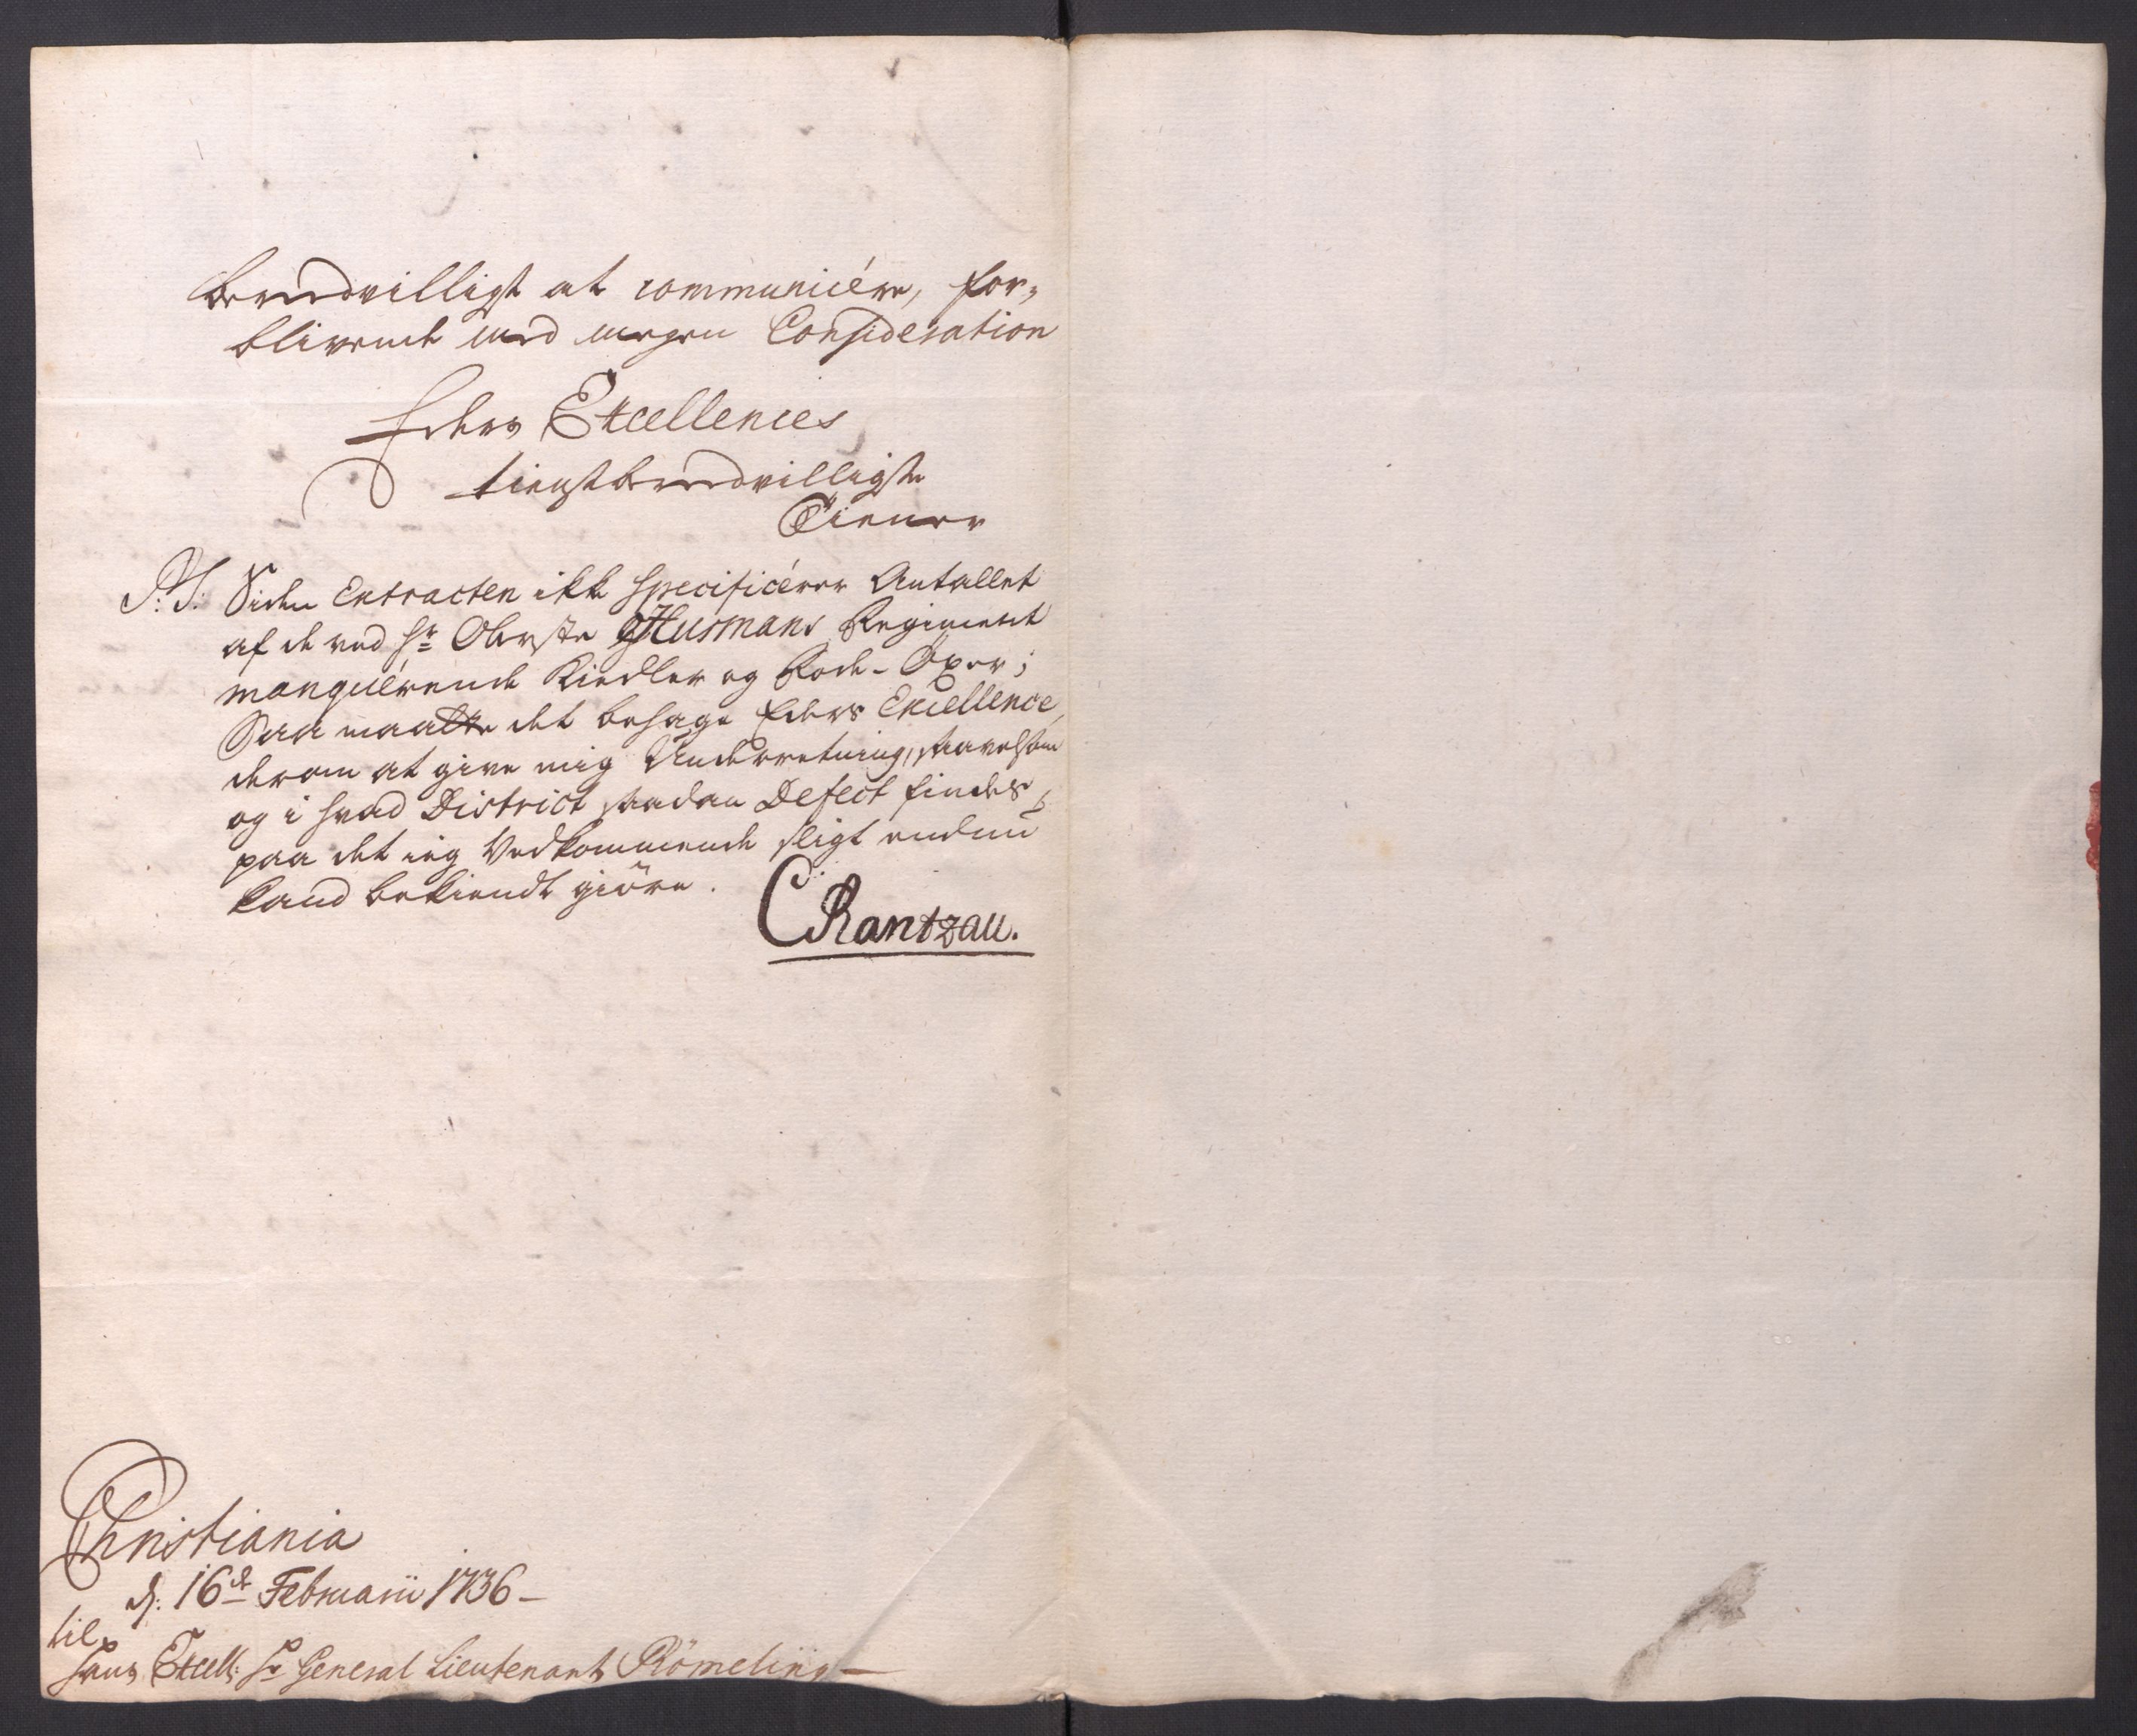 bereedvilligst at communicére, for„
blivende med megen Consideration
Eders Excellences
tienstbereedvilligste
Tiener
P:S: Siden Extracten ikke specificérer Antallet
af de ved Hr Oberste Husmans Regiment
manquérende Kiedler og Rode-Öxer;
Saa maatte det behage Eders Excellence,
derom at give mig Underretning, saavelsom
og i hvad District saadan Defect findes,
paa det ieg Vedkommende sligt endnu
kand bekiendt giöre.
CRantzau.
Christiania
d: 16de Februarii 1736 –
til
Hans Excell: Hr General Lieutenant Römeling –